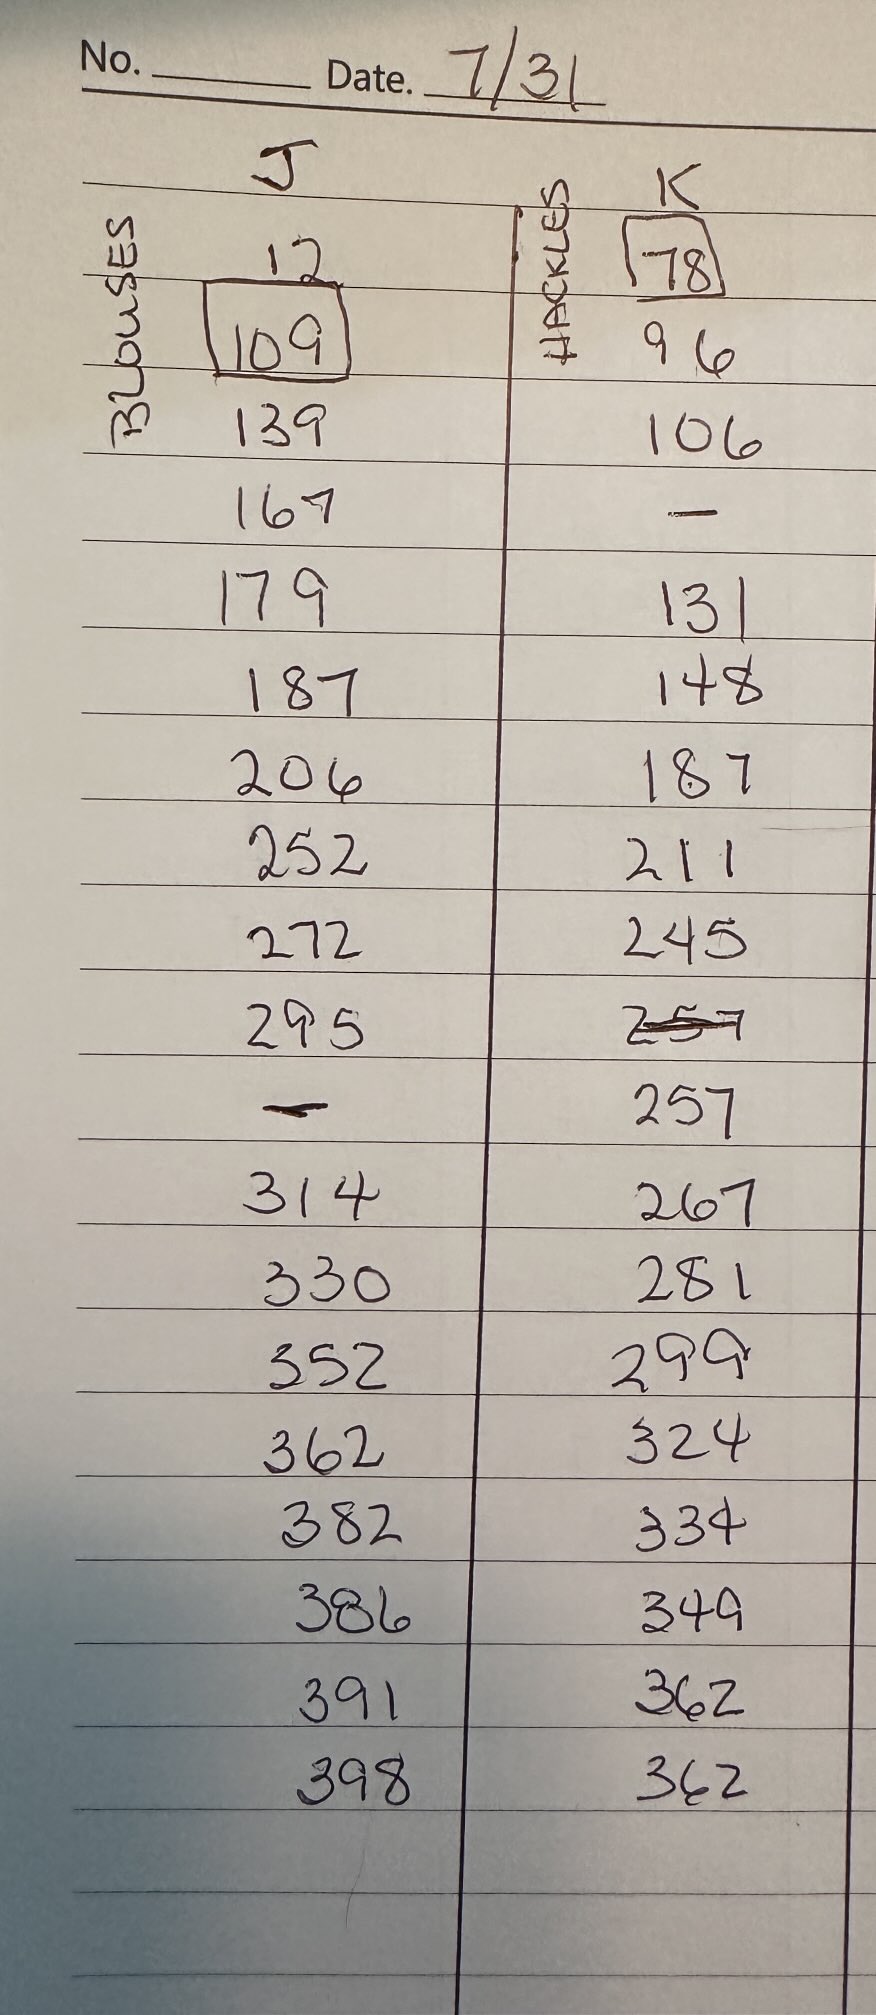 No. Date. 7/31
J K
BLOUSES HACKLES
12 78
109 96
139 106
167 -
179 131
187 148
206 187
252 211
272 245
295 257
- 257
314 267
330 281
352 299
362 324
382 334
386 349
391 362
398 362